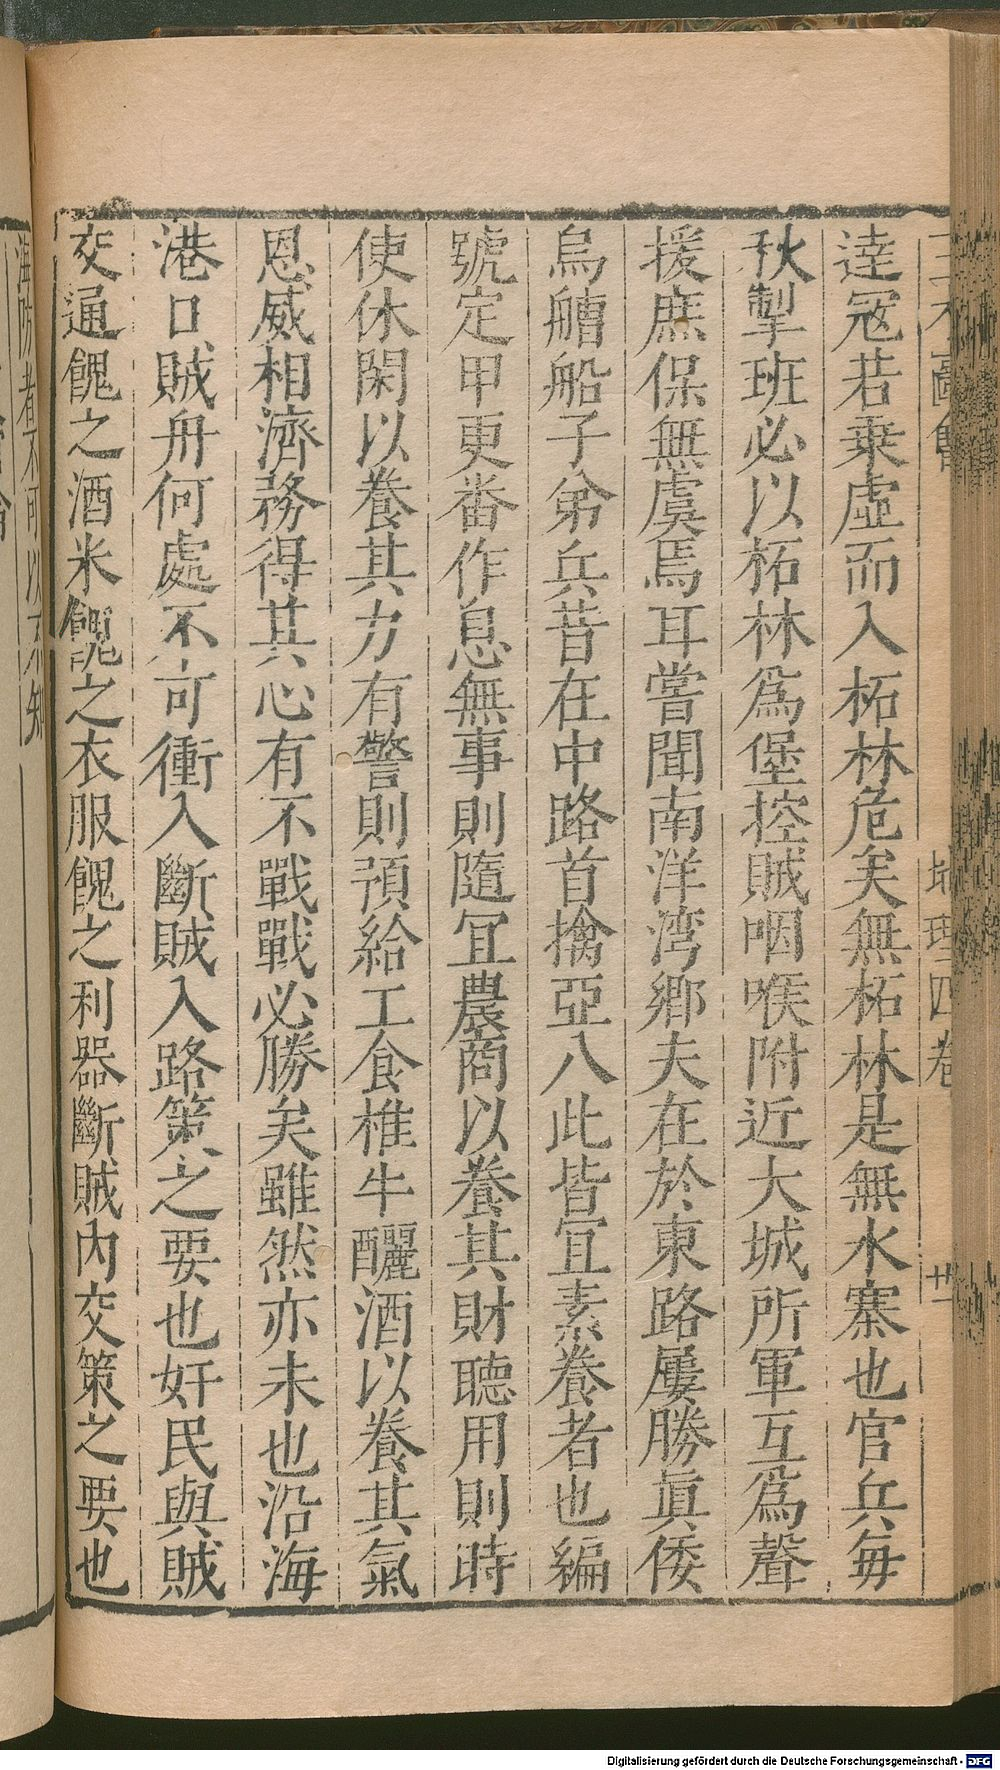 三才圖會
地理四卷
廿一
逹冦若乗虛而入柘林危矣無柘林是無水寨也官兵每
秋掣班必以柘林爲堡控賊咽喉附近大城所軍互爲聲
援庶保無虞焉耳嘗聞南洋湾鄉夫在於東路屢勝眞倭
烏艚船子弟兵昔在中路首擒亞八此皆宜素養者也編
號定甲更番作息無事則隨宜農商以養其財聽用則時
使休閑以養其力有警則預給工食椎牛釃酒以養其氣
恩威相濟務得其心有不戰戰必勝矣雖然亦未也沿海
港口賊舟何處不可衝入斷賊入路策之要也奸民與賊
交通餽之酒米餽之衣服餽之利器斷賊内交策之要也
海防者不可以不知
Digitalisierung gefördert durch die Deutsche Forschungsgemeinschaft - DFG